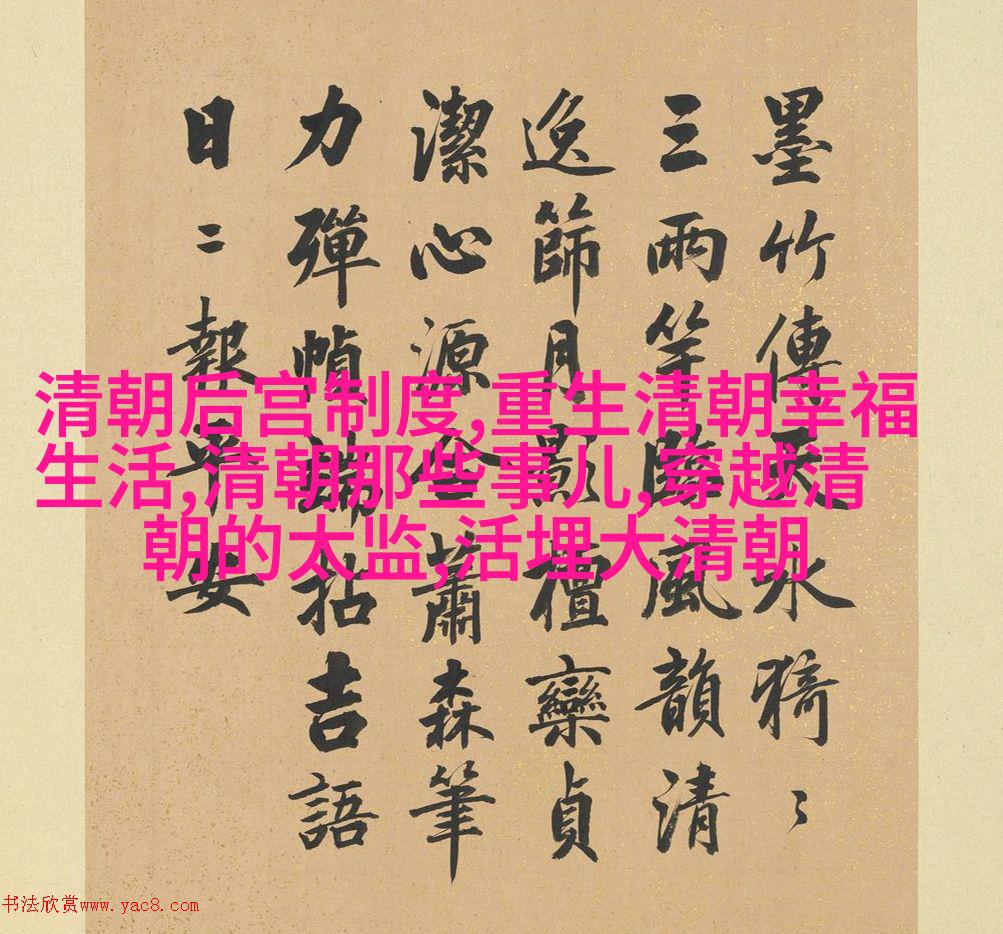 清朝后宫制度,重生清朝幸福
生活,清朝那些事儿,穿越清
朝的太监,活埋大清朝
墨竹傳天水猗〻
三兩竿臨風韻清
逸篩月影檀欒貞
潔心源蕭森筆
力彈幀端拈吉語
日二報平安
书法欣赏www.yac8.com